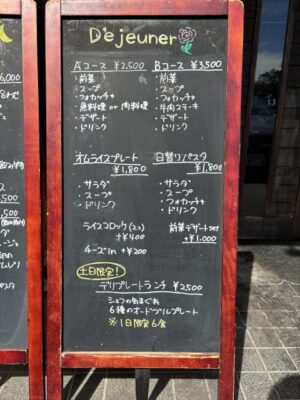 Déjeuner
Aコース ¥2,500
・前菜
・スープ
・フォカッチャ
・魚料理 or 肉料理
・デザート
・ドリンク
Bコース ¥3,500
・前菜
・スープ
・フォカッチャ
・牛肉ステーキ
・デザート
・ドリンク
オムライスプレート
¥1,800
・サラダ
・スープ
・ドリンク
ライスコロッケ(2コ)
+¥400
チーズin +¥200
日替りパスタ
¥1,800
・サラダ
・スープ
・フォカッチャ
・ドリンク
前菜デザートset
+¥1,000
土日限定!
デリプレートランチ ¥2500
シェフの気まぐれ
6種のオードブルプレート
※1日限定6食
6,000
,500
,500